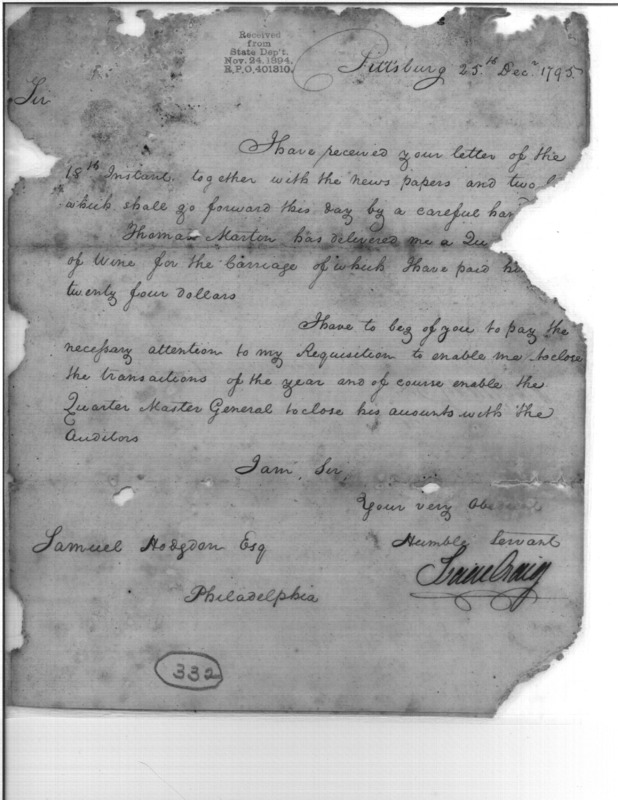 Received
from
State Dep't.
Nov. 24, 1894.
R.P.O. 401310.
Pittsburg 25th Decr 1795
Sir
I have received your letter of the
18th Instant together with the news papers and two
which shall go forward this day by a careful
Thomas Marton has delivered me a
of Wine for the Carriage of which I have paid
twenty four dollars
I have to beg of you to pay the
necessary attention to my Requisition to enable me to close
the transactions of the year and of course enable the
Quarter Master General to close his acounts with the
Auditors
I am Sir
Your very
Humble Servant
Isaac Craig
Samuel Hodgdon Esq
Philadelphia
332